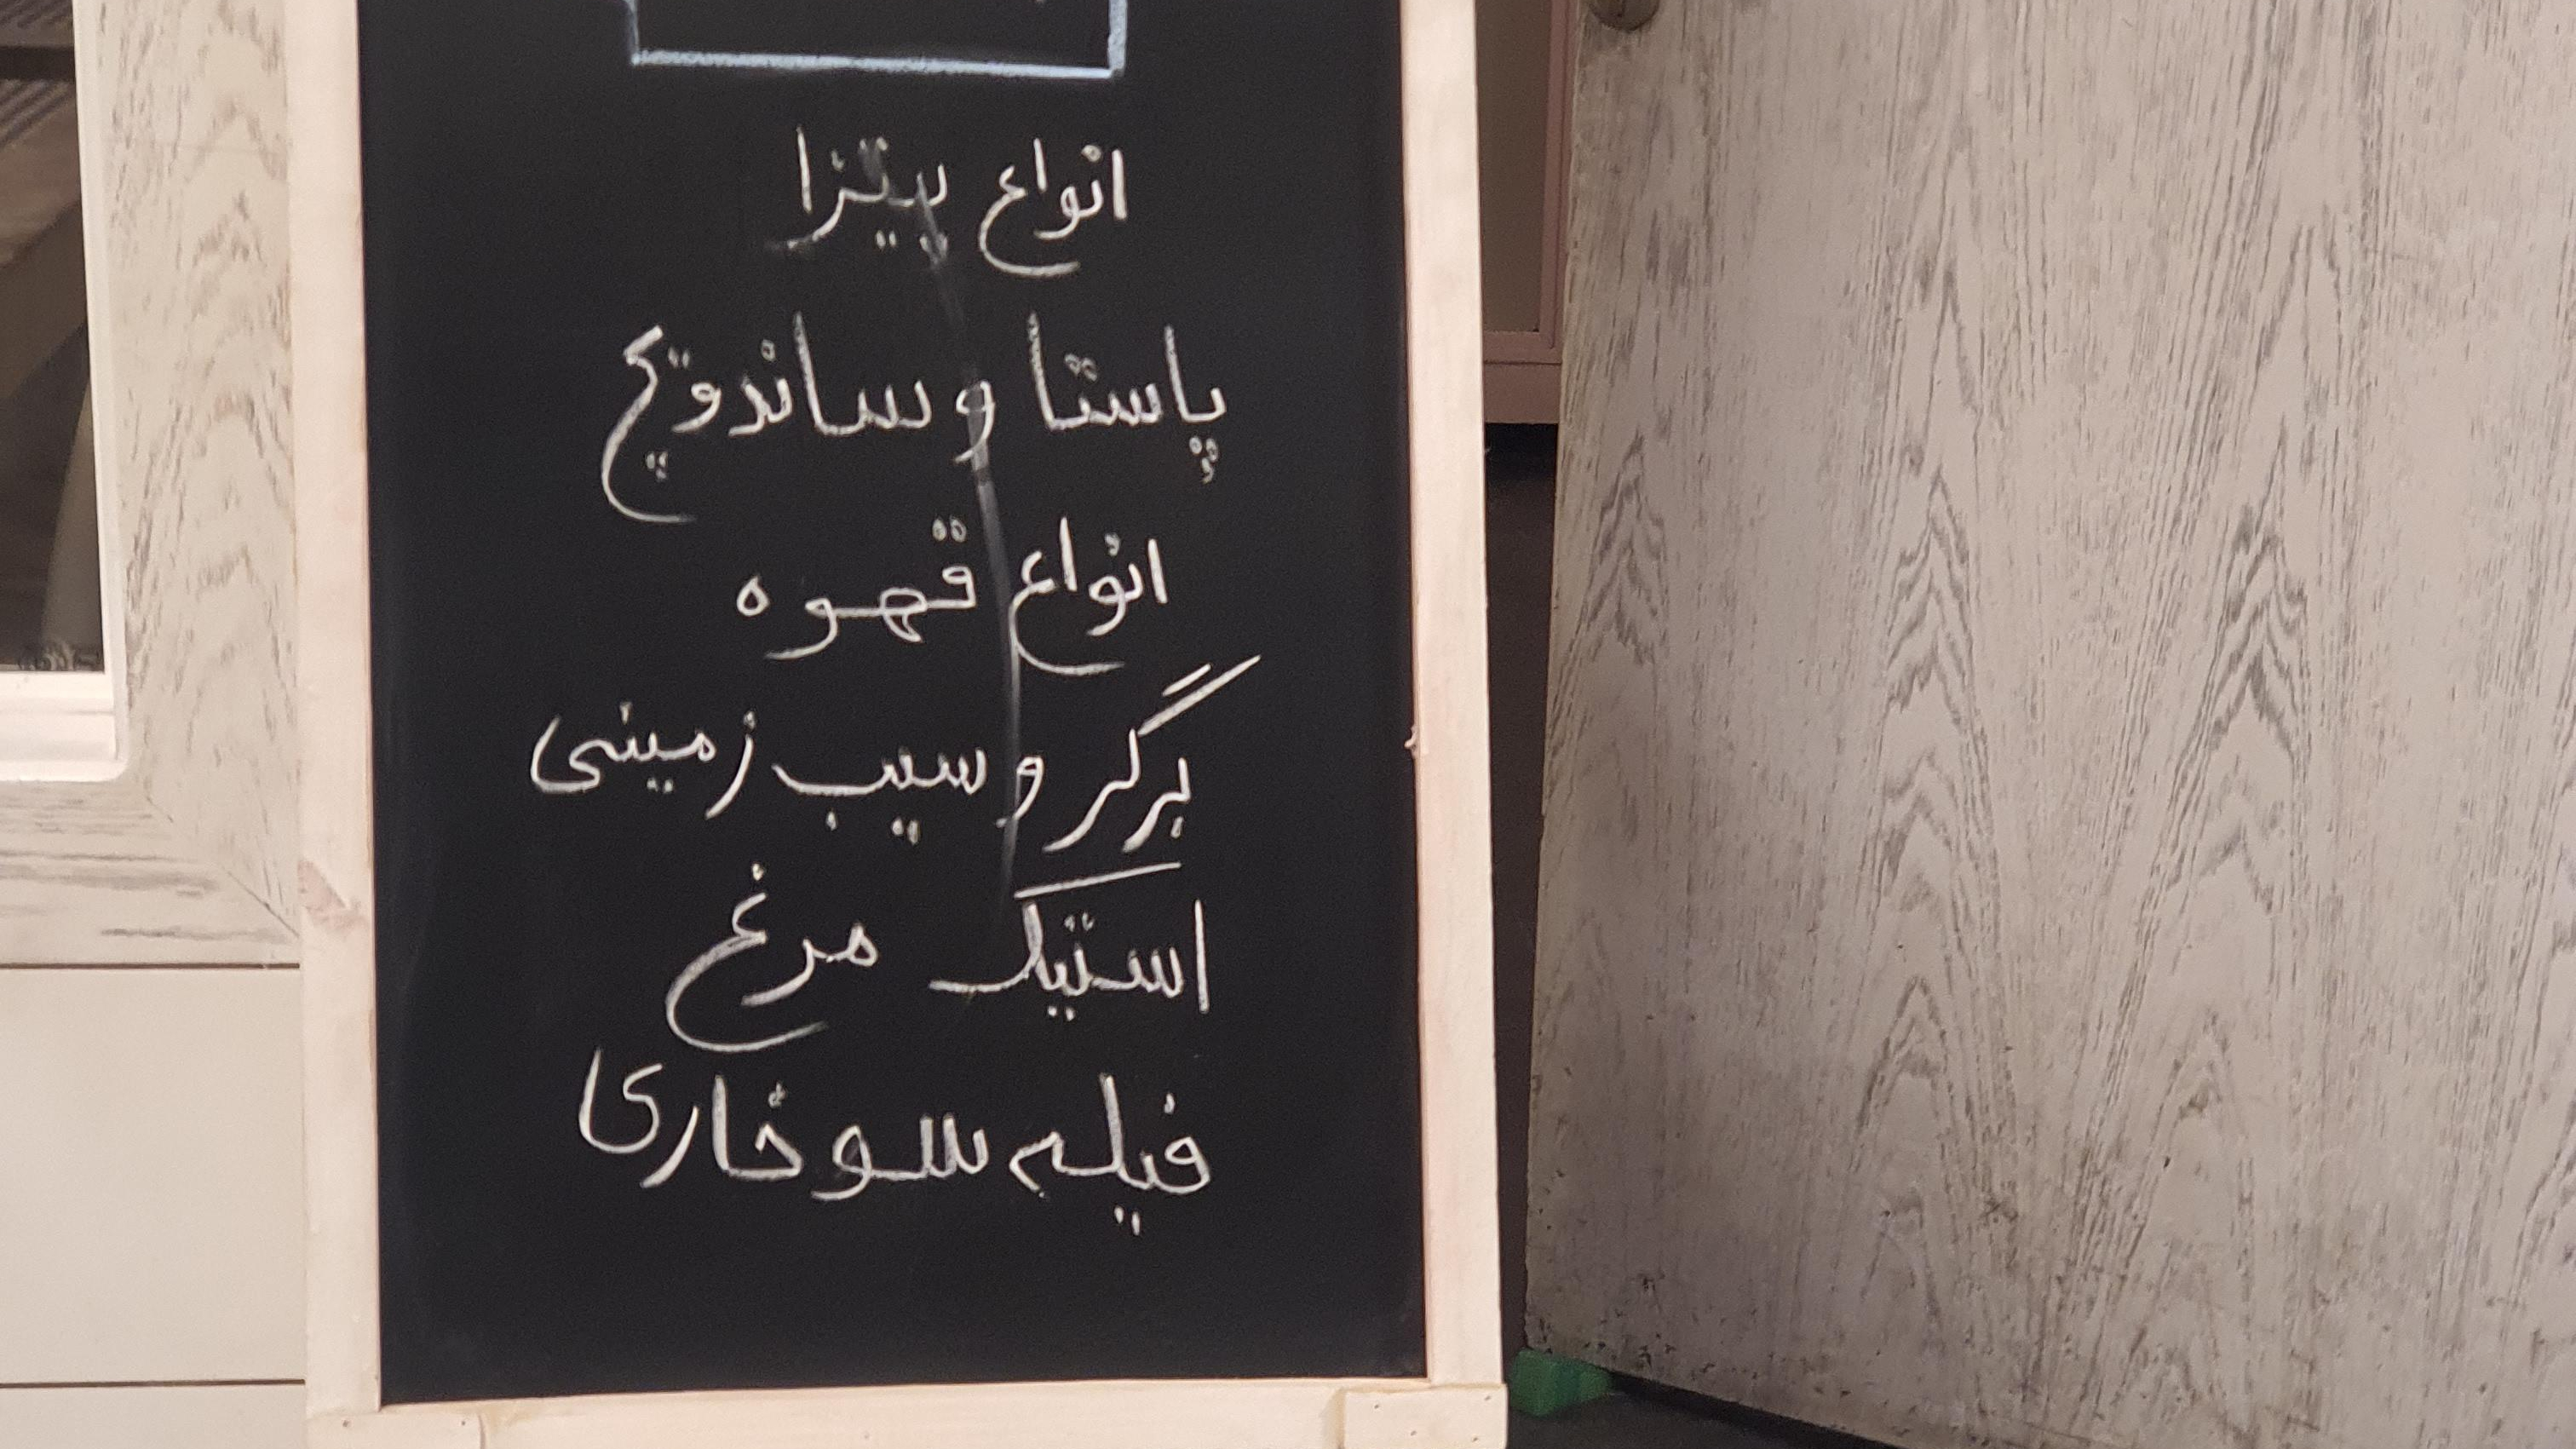 انواع پیتزا
پاستا و ساندویچ
انواع قهوه
برگر و سیب زمینی
استیک مرغ
فیله سوخاری